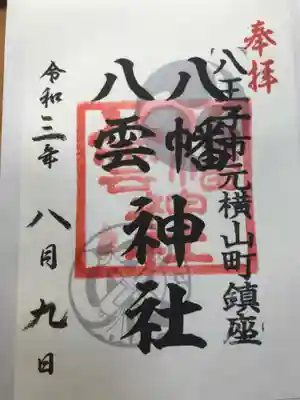 奉拝
八王子市元横山町鎮座
八幡
八雲
神社
令和三年
八月九日